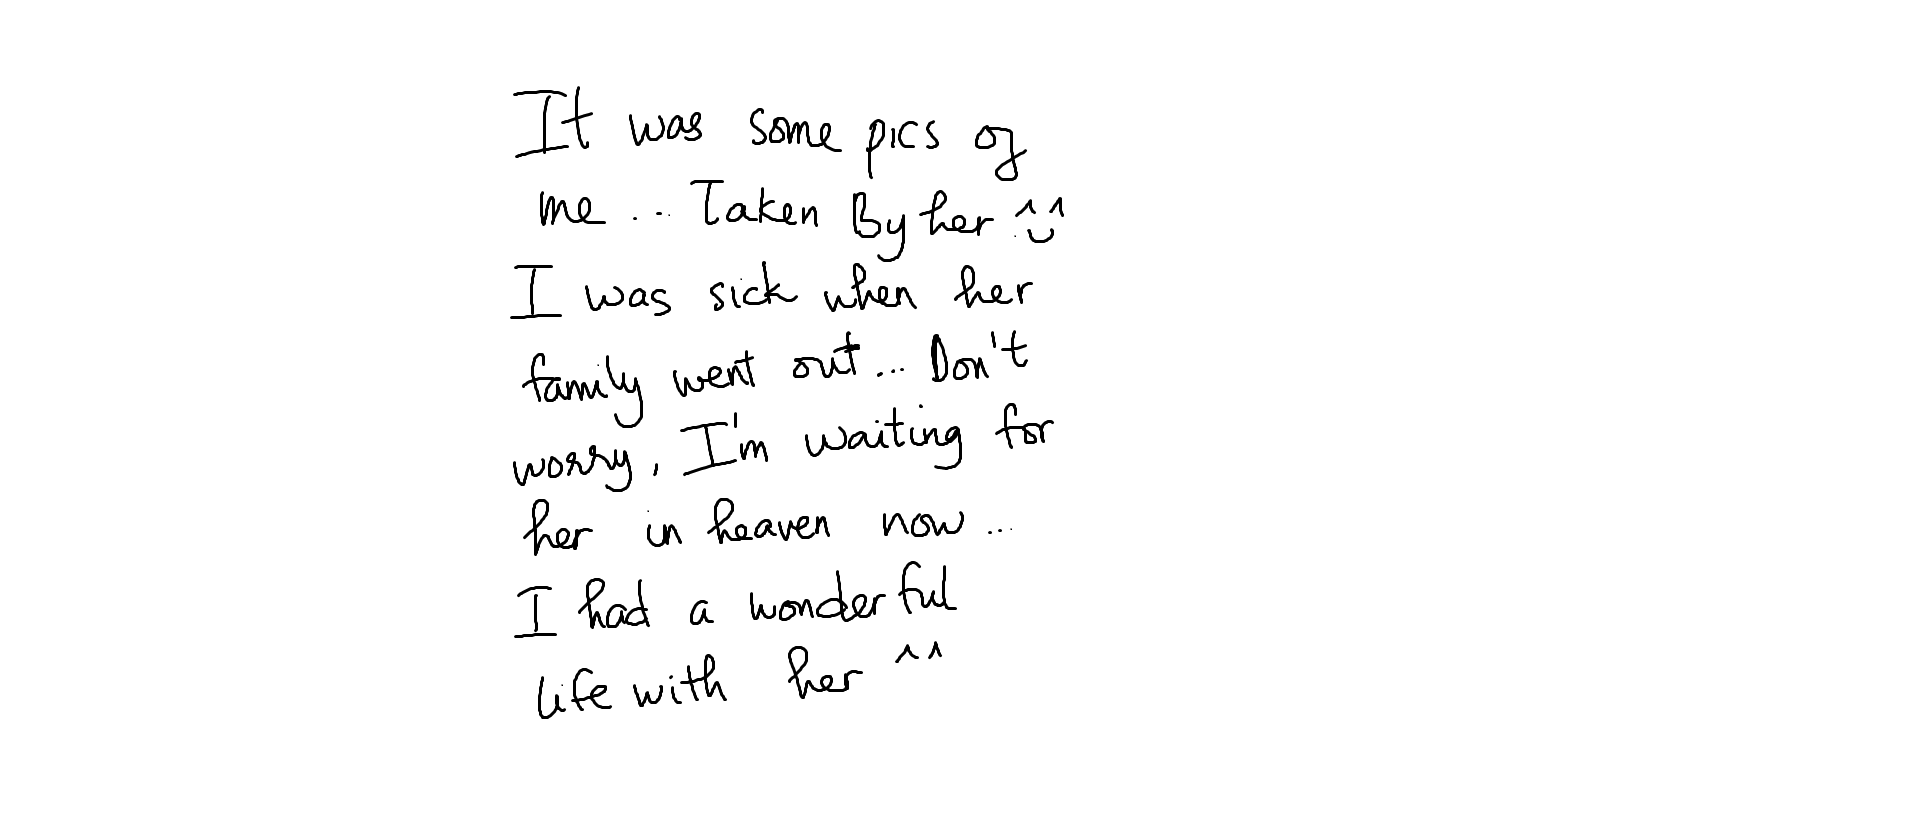 It was some pics of
me... Taken By her ^^
I was sick when her
family went out... Don't
worry, I'm waiting for
her in heaven now...
I had a wonderful
life with her ^^